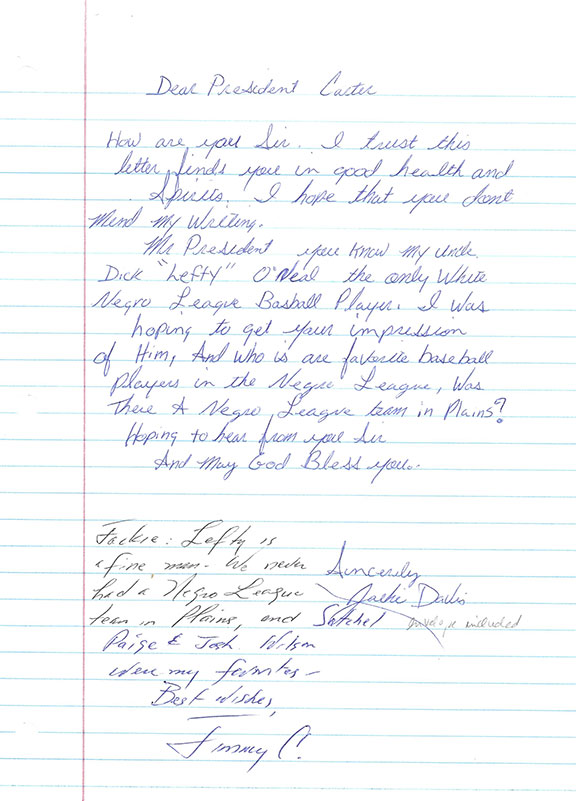 Dear President Carter
How are you Sir. I trust this
letter finds you in good health and
Spirits. I hope that you dont
Mind my Writing.
Mr President you know my uncle
Dick "Lefty" O'Neal the only White
Negro League Basball Player. I was
hoping to get your impression
of Him, And who is are favorite baseball
players in the Negro League, Was
There A Negro League team in Plains?
Hoping to hear from you Sir
And May God Bless you.
Sincerely
Jacki Davis
envelope included
Jackie: Lefty is
a fine man - We never
had a Negro League
team in Plains, and Satchel
Paige & Josh Wilson
were my favorites -
Best wishes,
Jimmy C.